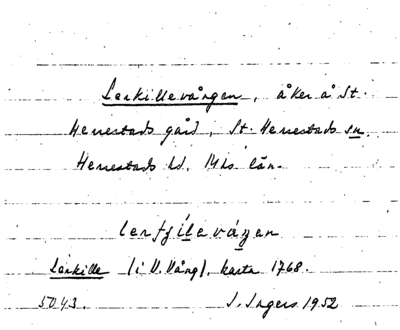 Lerkillevången, åker å St.
Herrestads gård, St. Herrestads sn.
Herrestads hd. Mhs län.
lerfjilevåŋen
Lerkille (i V. Vång), karta 1768.
5043. I. Ingers 1952